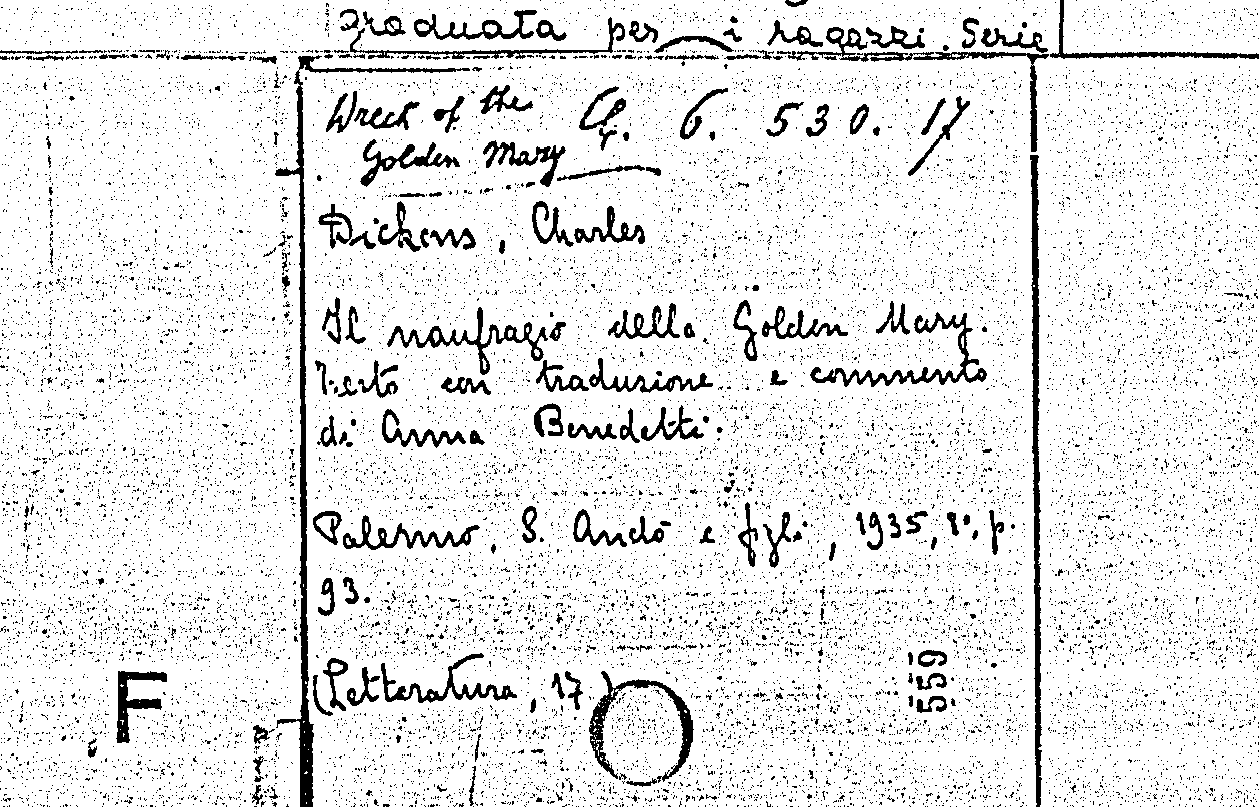 graduata per i ragazzi. Serie
Wreck of the
Golden Mary
6. 530. 17
Dickens, Charles
Il naufragio della Golden Mary.
Testo con traduzione e commento
di Anna Benedetti.
Palermo, S. Andò e figli, 1935, 8°, p.
93.
(Letteratura, 17)
559
F